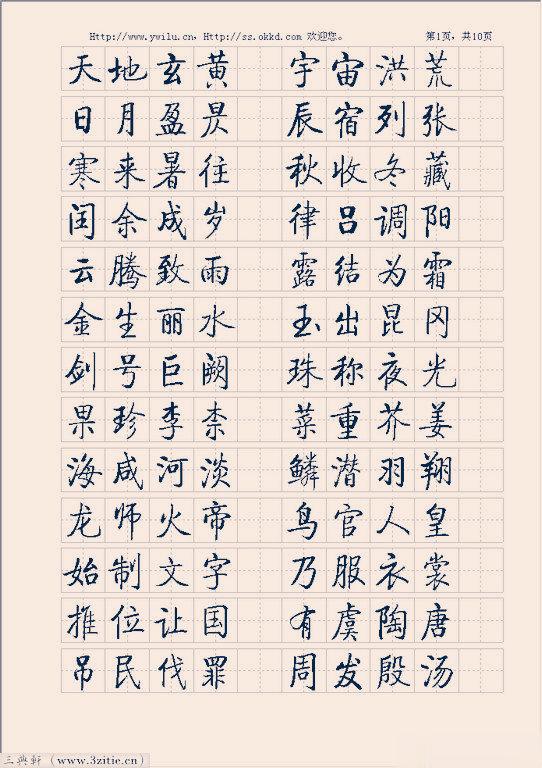 Http://www.ywilu.cn，Http://ss.okkd.com 欢迎您。 第1页，共10页
天地玄黄 宇宙洪荒
日月盈昃 辰宿列张
寒来暑往 秋收冬藏
闰余成岁 律吕调阳
云腾致雨 露结为霜
金生丽水 玉出昆冈
剑号巨阙 珠称夜光
果珍李柰 菜重芥姜
海咸河淡 鳞潜羽翔
龙师火帝 鸟官人皇
始制文字 乃服衣裳
推位让国 有虞陶唐
吊民伐罪 周发殷汤
三典轩（www.3zitie.cn）